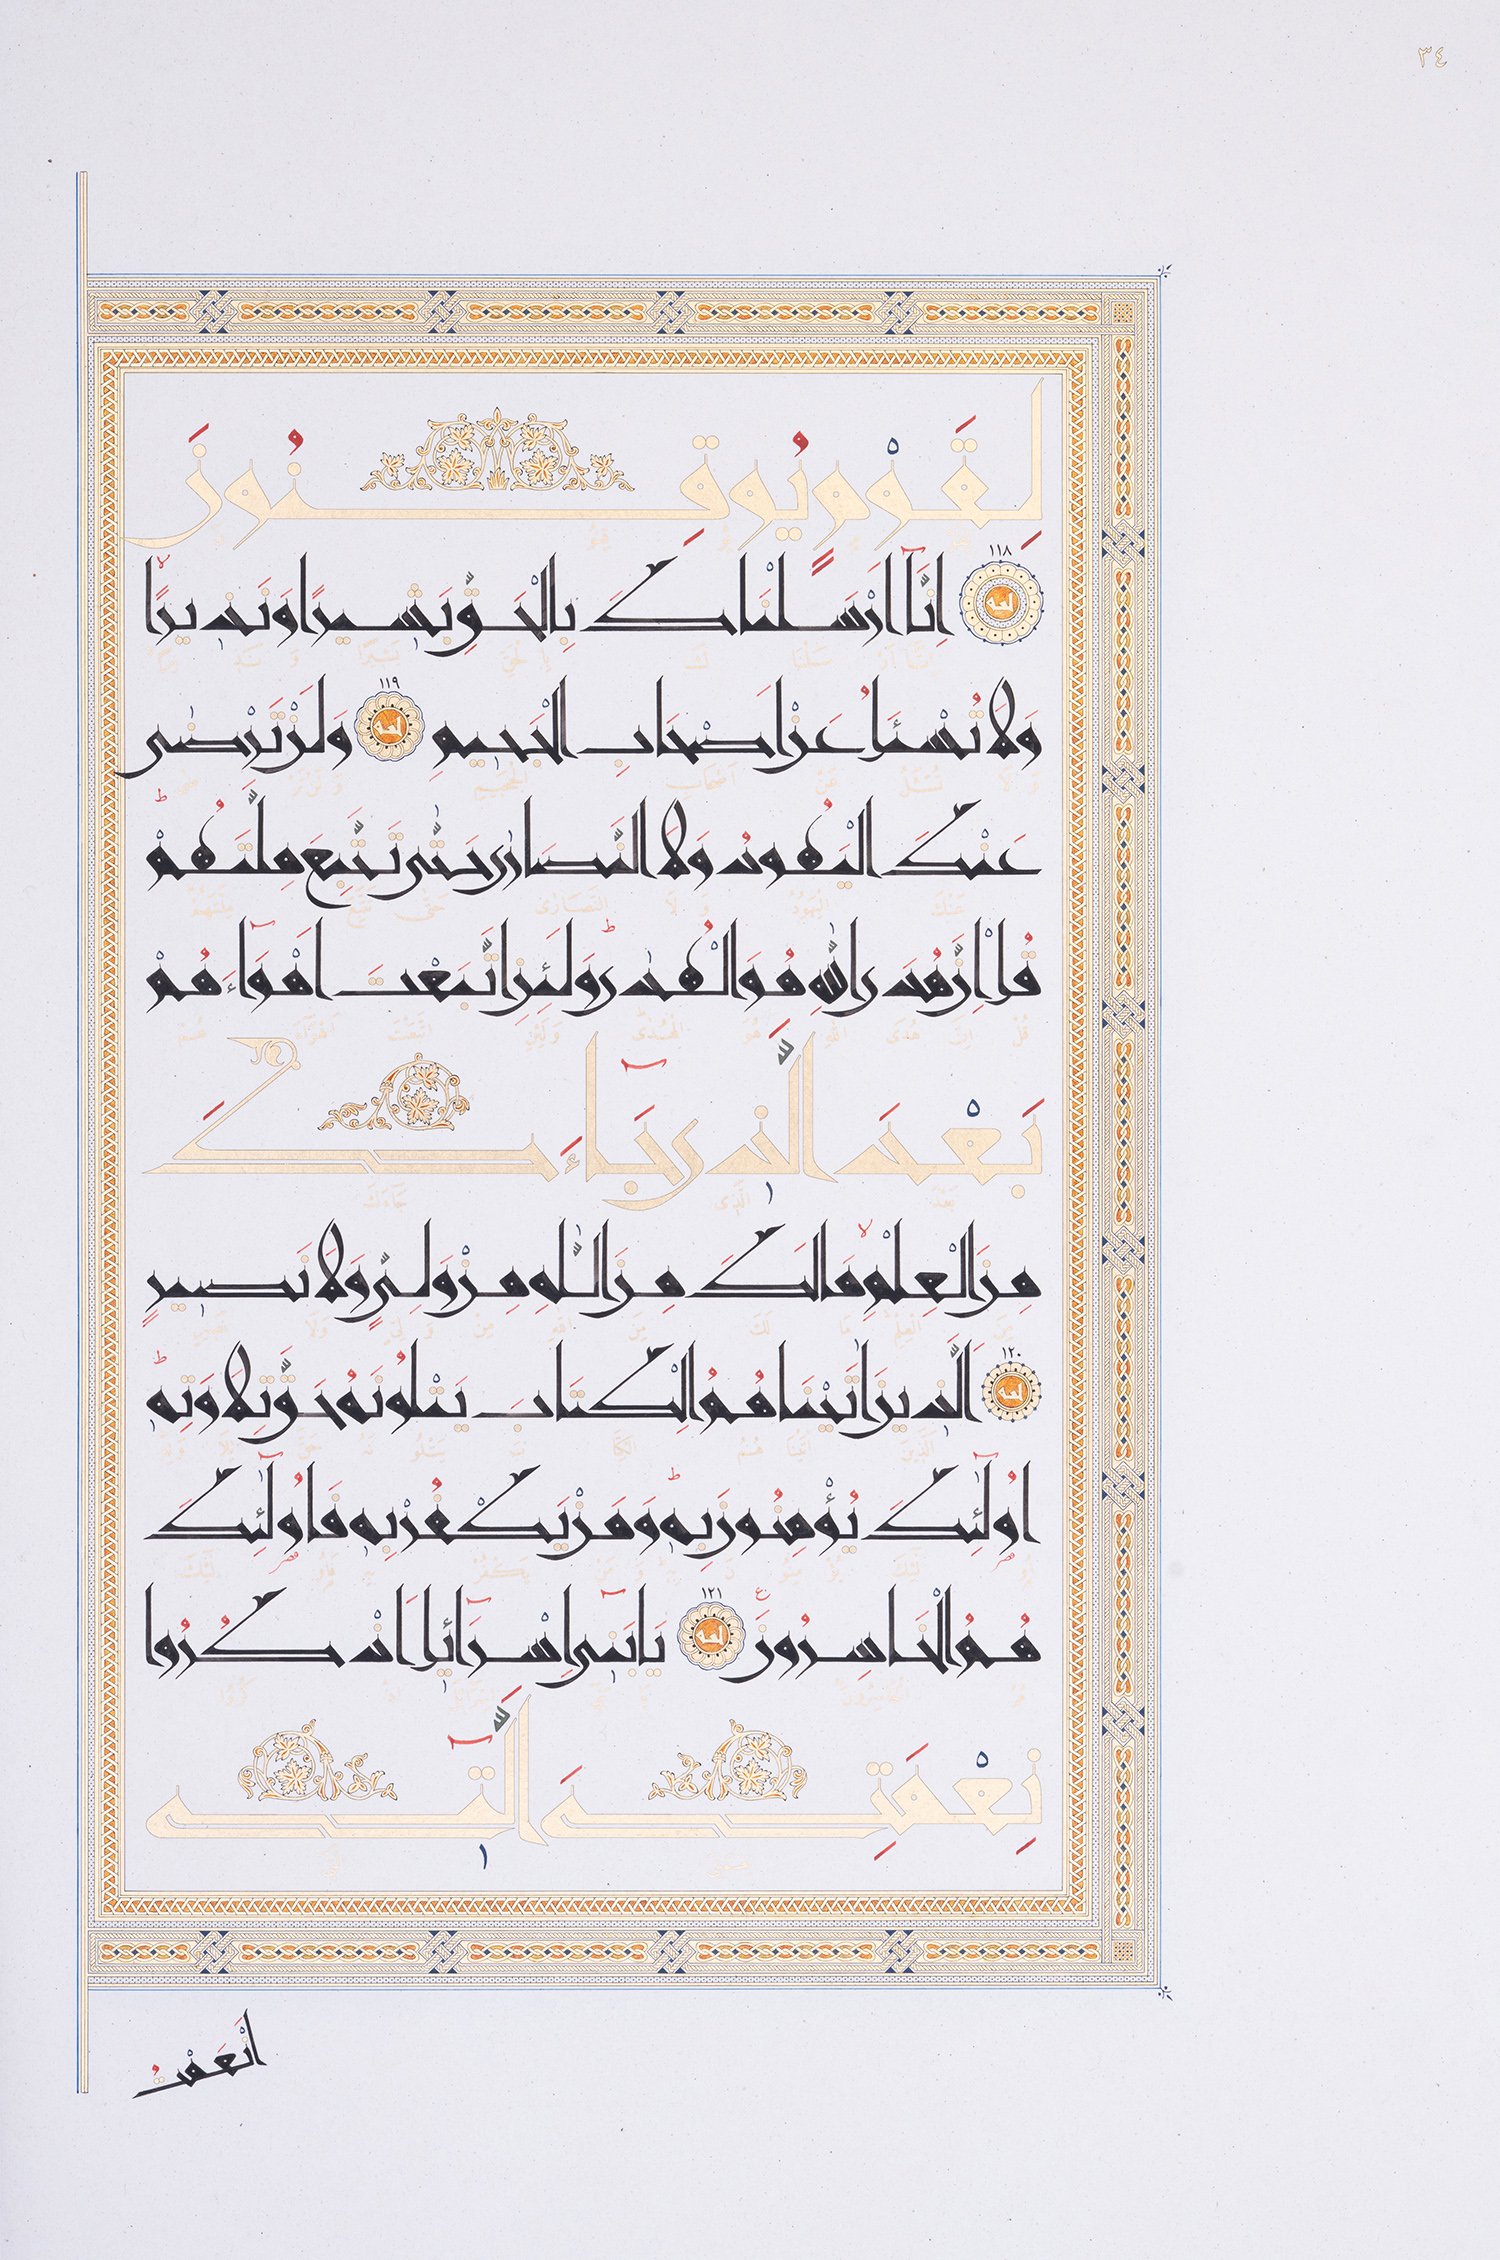 ٣٤
لِقَوْمٍ يُوقِنُونَ
١١٨ اِنَّٓا اَرْسَلْنَاكَ بِالْحَقِّ بَشٖيرًا وَنَذٖيرًاۙ
وَلَا تُسْئَلُ عَنْ اَصْحَابِ الْجَحٖيمِ ١١٩ وَلَنْ تَرْضٰى
عَنْكَ الْيَهُودُ وَلَا النَّصَارٰى حَتّٰى تَتَّبِعَ مِلَّتَهُمْؕ
قُلْ اِنَّ هُدَى اللّٰهِ هُوَ الْهُدٰىؕ وَلَئِنِ اتَّبَعْتَ اَهْوَٓاءَهُمْ
بَعْدَ الَّذٖى جَٓاءَكَ
مِنَ الْعِلْمِۙ مَالَكَ مِنَ اللّٰهِ مِنْ وَلِىٍّ وَلَا نَصٖيرٍ
١٢٠ اَلَّذٖينَ اٰتَيْنَاهُمُ الْكِتَابَ يَتْلُونَهُ حَقَّ تِلَاوَتِهٖؕ
اُولٰٓئِكَ يُؤْمِنُونَ بِهٖؕ وَمَنْ يَكْفُرْ بِهٖ فَاُولٰٓئِكَ
هُمُ الْخَاسِرُونَ ١٢١ ع يَا بَنٖٓى اِسْرَٓائٖلَ اذْكُرُوا
نِعْمَتِىَ الَّتٖٓى
اَنْعَمْتُ